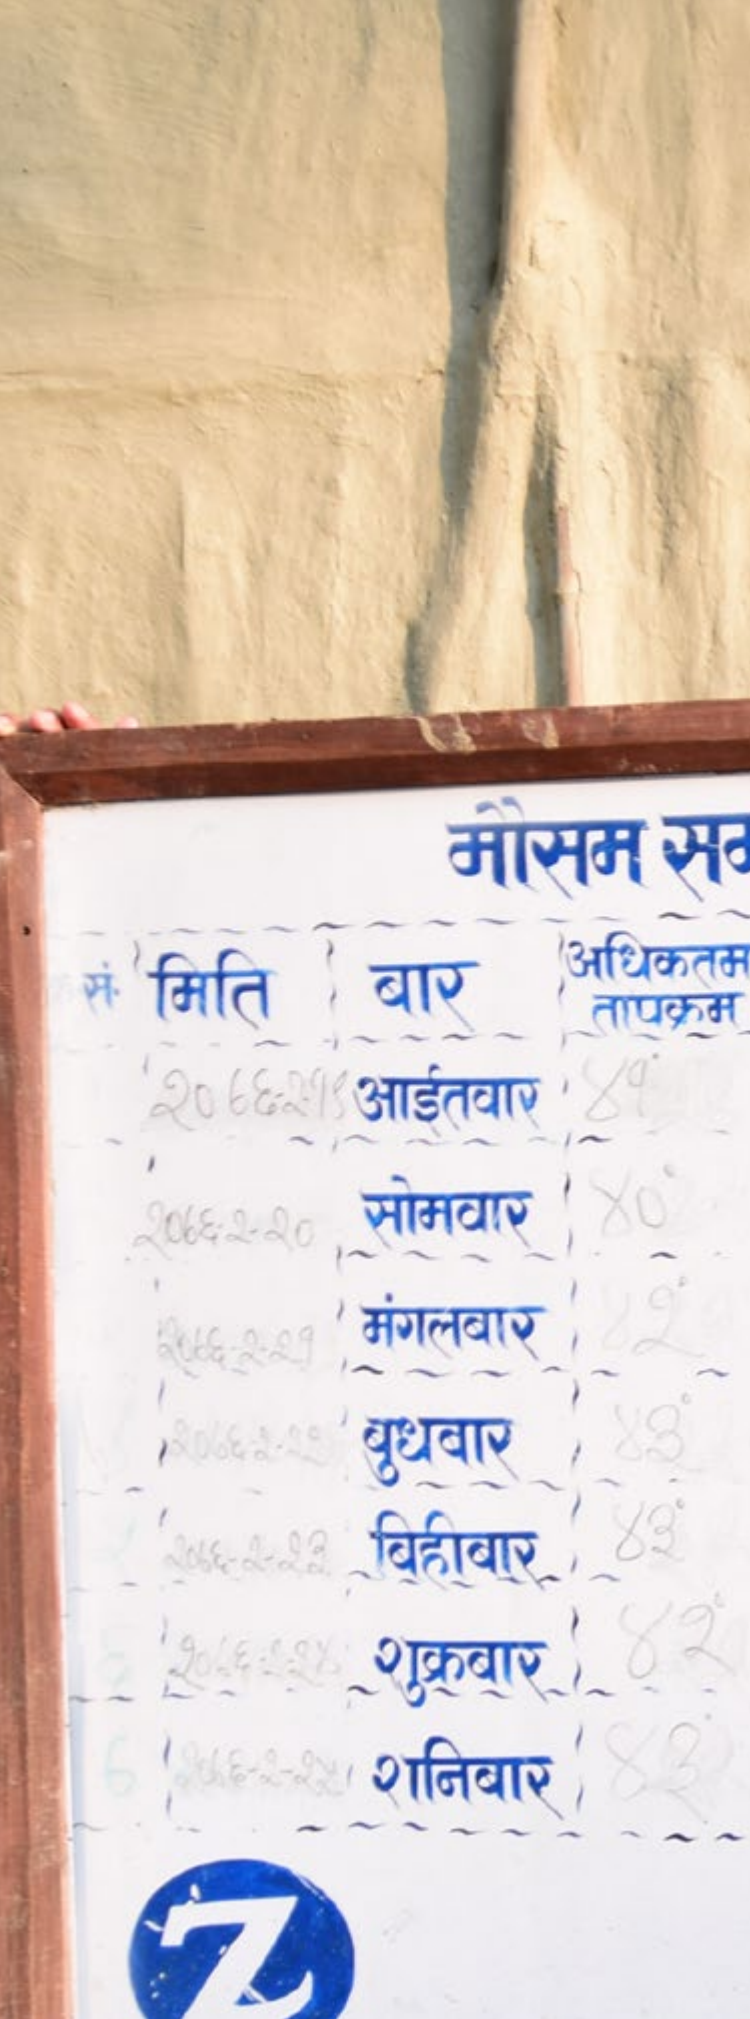 मौसम
सं. मिति बार अधिकतम तापक्रम
२०६६-२-१९ आईतवार ४१°
२०६६-२-२० सोमवार ४०°
२०६६-२-२१ मंगलबार ४२°
२०६६-२-२२ बुधबार ४३°
२०६६-२-२३ बिहीबार ४३°
२०६६-२-२४ शुक्रबार ४२°
6 २०६६-२-२५ शनिबार ४३°
Z